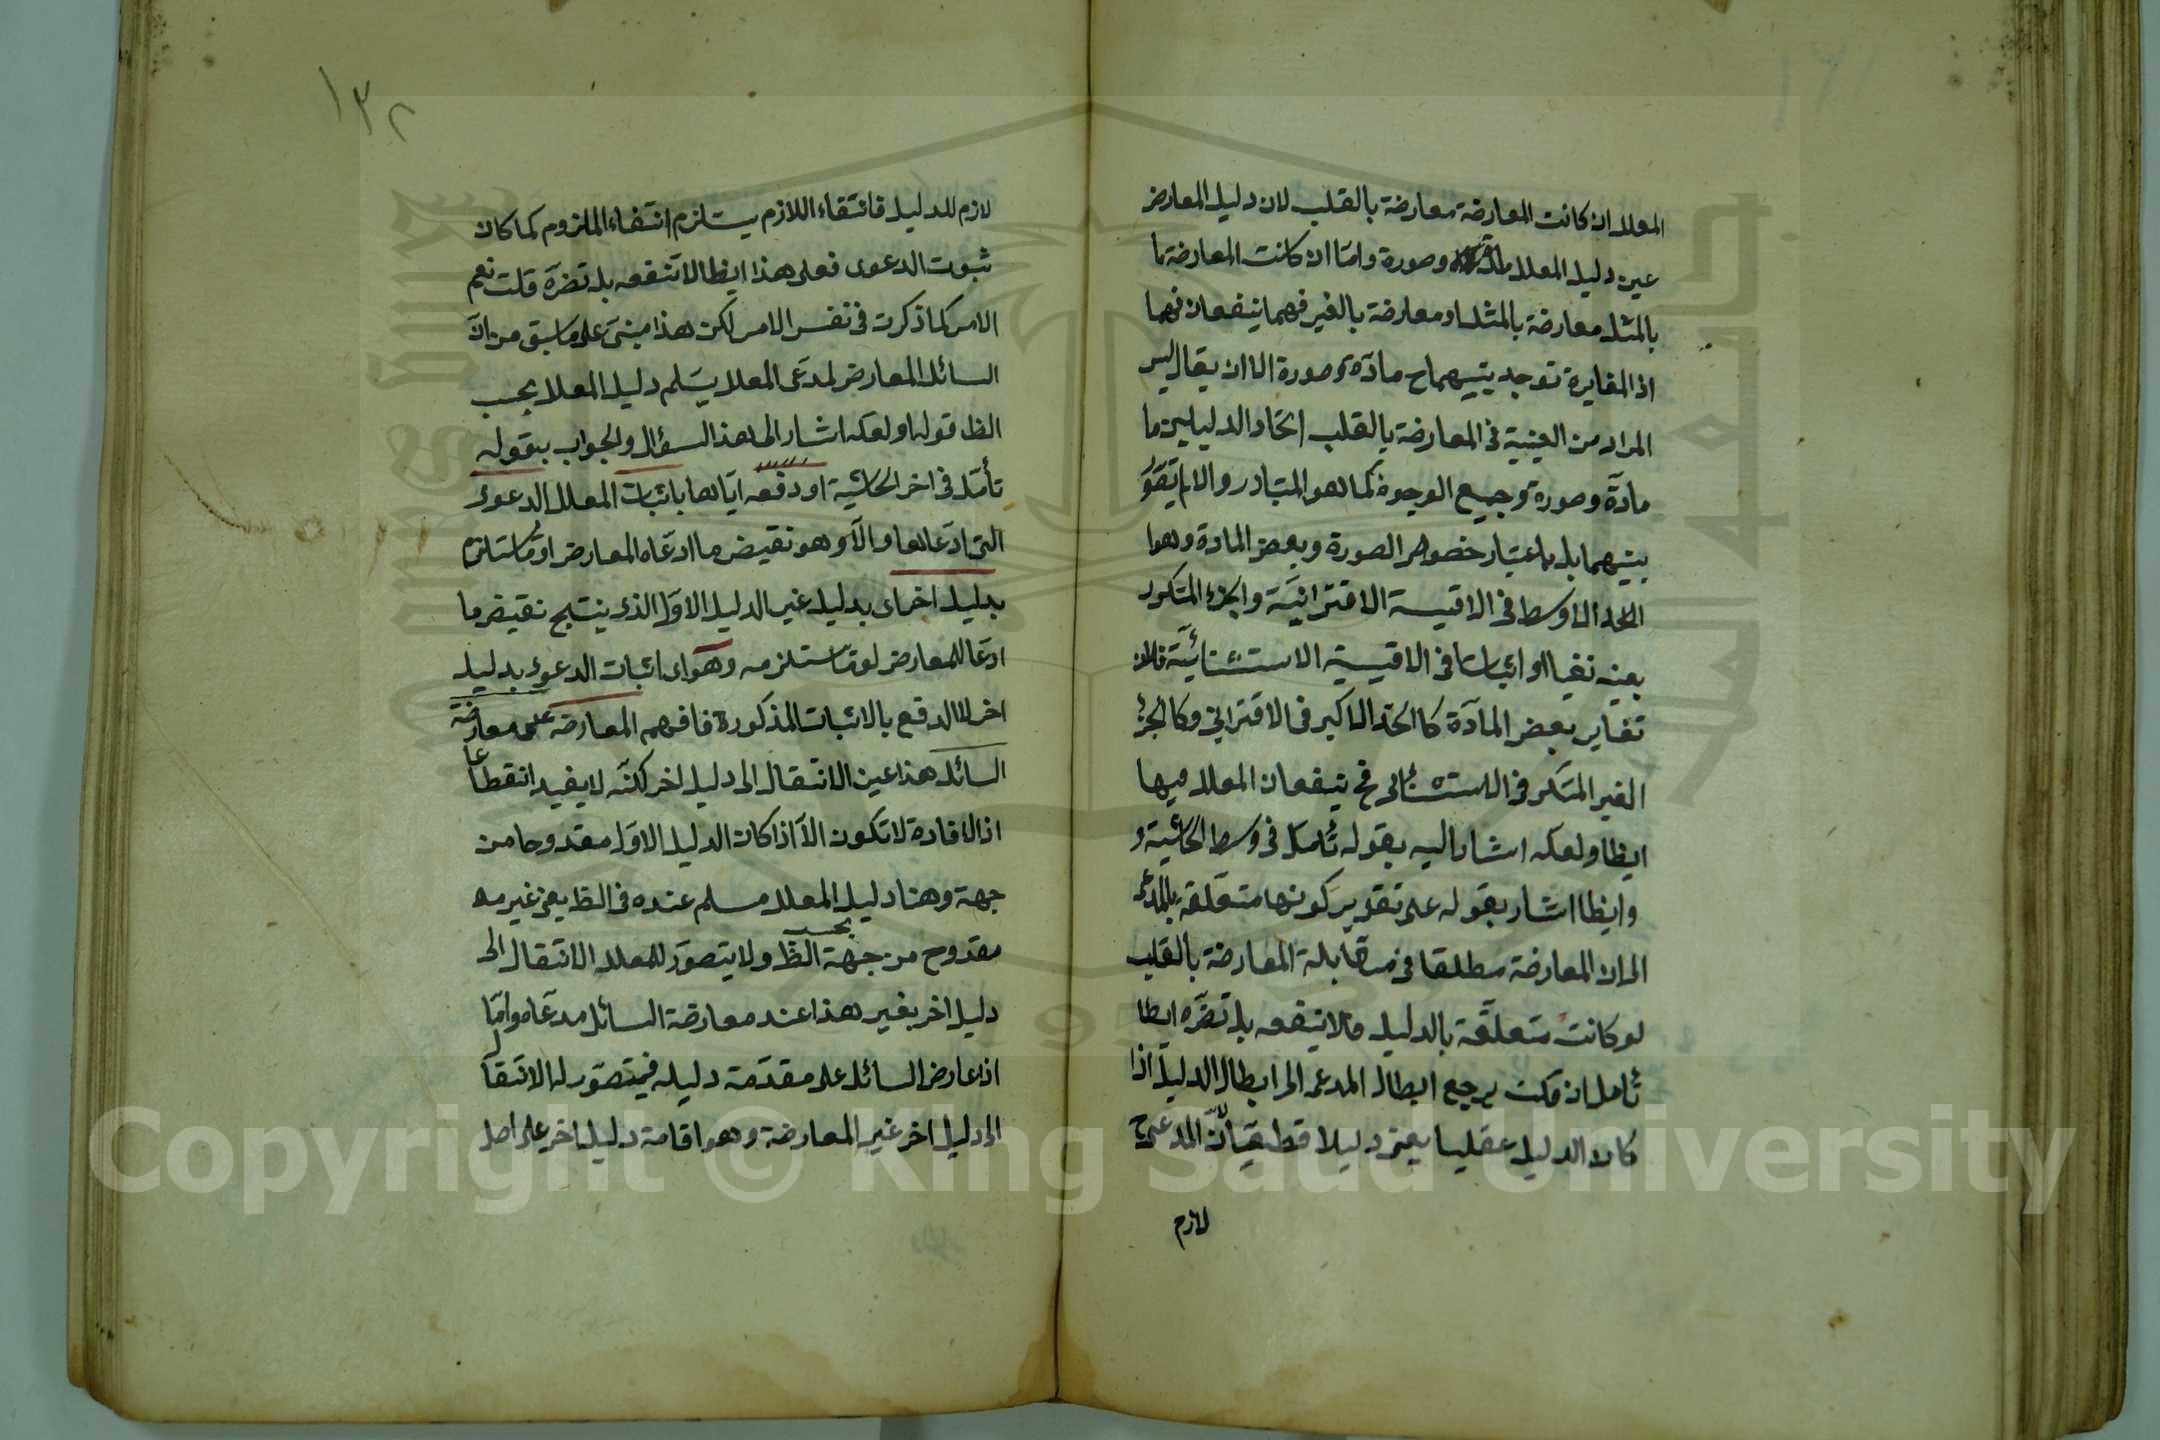 المعلل ان كانت المعارضة معارضة بالقلب لان دليل المعارض
عين دليل المعلل مادة وصورة واما ان كانت المعارضة ما
بالمثل معارضة بالمثل او معارضة بالغير فهما ينفعان فهما
اذ المغايرة توجد بينهما ح مادّة وصورة الا ان يقال ليس
المراد من العينية فى المعارضة بالقلب اتحاد الدليلين ما
مادّة وصورة وجميع الوجوه كما هو المتبادر والا لم يتصوّر
بينهما بل باعتبار خصوص الصورة وبعض المادة وهوا
الحد الاوسط فى الاقيسة الاقترانيّة والجزء المتكرر
بعينه نفيا او اثباتا فى الاقيسة الاستثنائيّة فلان
تغاير بعض المادّة كالحدّ الاكبر فى الاقترانى وكالجزء
الغير المتكرر فى الاستثنائى فح ينفعان المعلل فيها
ايضا ولعله اشار اليه بقوله تأمل فى وسط الحاشية و
وايضا اشار بقوله على تقدير كونها متعلقة بالمدعى
الى ان المعارضة مطلقا فى مقابلة المعارضة بالقلب
لو كانت متعلّقة بالدليل فلا ينفعه بل تضرّه ايضا
تأمل ان قلت يرجع ابطال المدعى الى ابطال الدليل اذا
كان الدليل عقليا يعنى دليلا قطعيّا لانّ المدعى ح
لازم
١٣٢
لازم للدليل فانتفاء اللازم يستلزم انتفاء الملزوم كما كان
ثبوت الدعوى فعلى هذا ايضا لا تنفعه بل تضرّه قلت نعم
الامر كما ذكرت فى نفس الامر لكن هذا مبنىّ على ما سبق من انّ
السائل المعارض لمدعى المعلل يسّلم دليل المعلل بحسب
الظ قوله او لعله اشار الى هذا السؤال والجواب بقوله
تأمّل فى اخر الحاشية او دفعه اياها باثبات المعلل الدعوى
التى ادّعاها اولّا وهو نقيض ما ادعاه المعارض او ما يستلزمه
بدليل اخر اى بدليل غير الدليل الاوّل الذى ينتج نقيض ما
ادعاه المعارض او ما يستلزمه وهو اى اثبات الدعوى بدليل
اخر او الدفع بالاثبات المذكورة فافهم المعارضة على معارضة
السائل هذا عين الانتقال الى دليل اخر لكنّه لا يفيد انقطاعا
اذ الافادة لا تكون الّا اذا كان الدليل الاوّل مقدوحا من
جهة وهنا دليل المعلل مسلم عنده فى الظ يعنى غير مه
مقدوح من جهة بحسب الظّ ولا يتصوّر للمعلل الانتقال الى
دليل اخر بغير هذا عند معارضة السائل مدعاه وامّا
اذا عارض السائل على مقدّمة دليله فيتصوّر له الانتقال
الى دليل اخر غير المعارضة وهو اقامة دليل اخر على اصل
Copyright © King Saud University